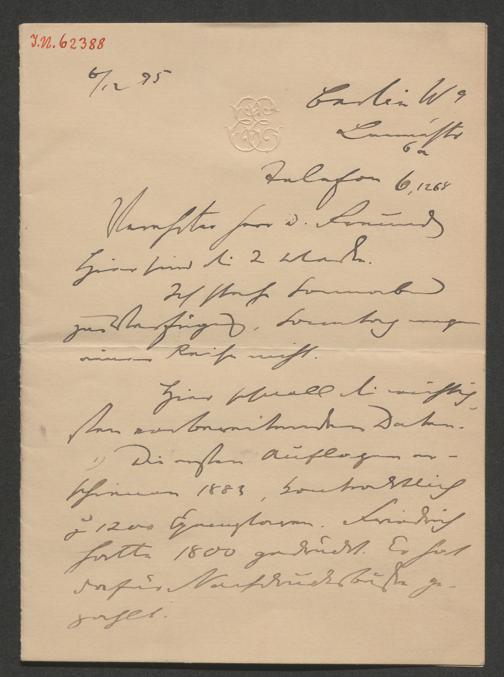 I.N. 62388
6/12 95
Berlin W 9
Lennéstr
6a
Telefon 6, 1268
Verehrter Herr u. Freund
Hier sind die 2 Werke.
Ich stehe Sonnabend
zur Verfügung, Sonntag wegen
einer Reise nicht.
Hier schnell die wichtig-
sten vorbereitenden Daten.
1) Die ersten Auflagen er-
schienen 1883, kontraktlich
à 1200 Exemplaren. Friedrich
hatte 1800 gedruckt. Er hat
dafür Nachdrucksbuße ge-
zahlt.